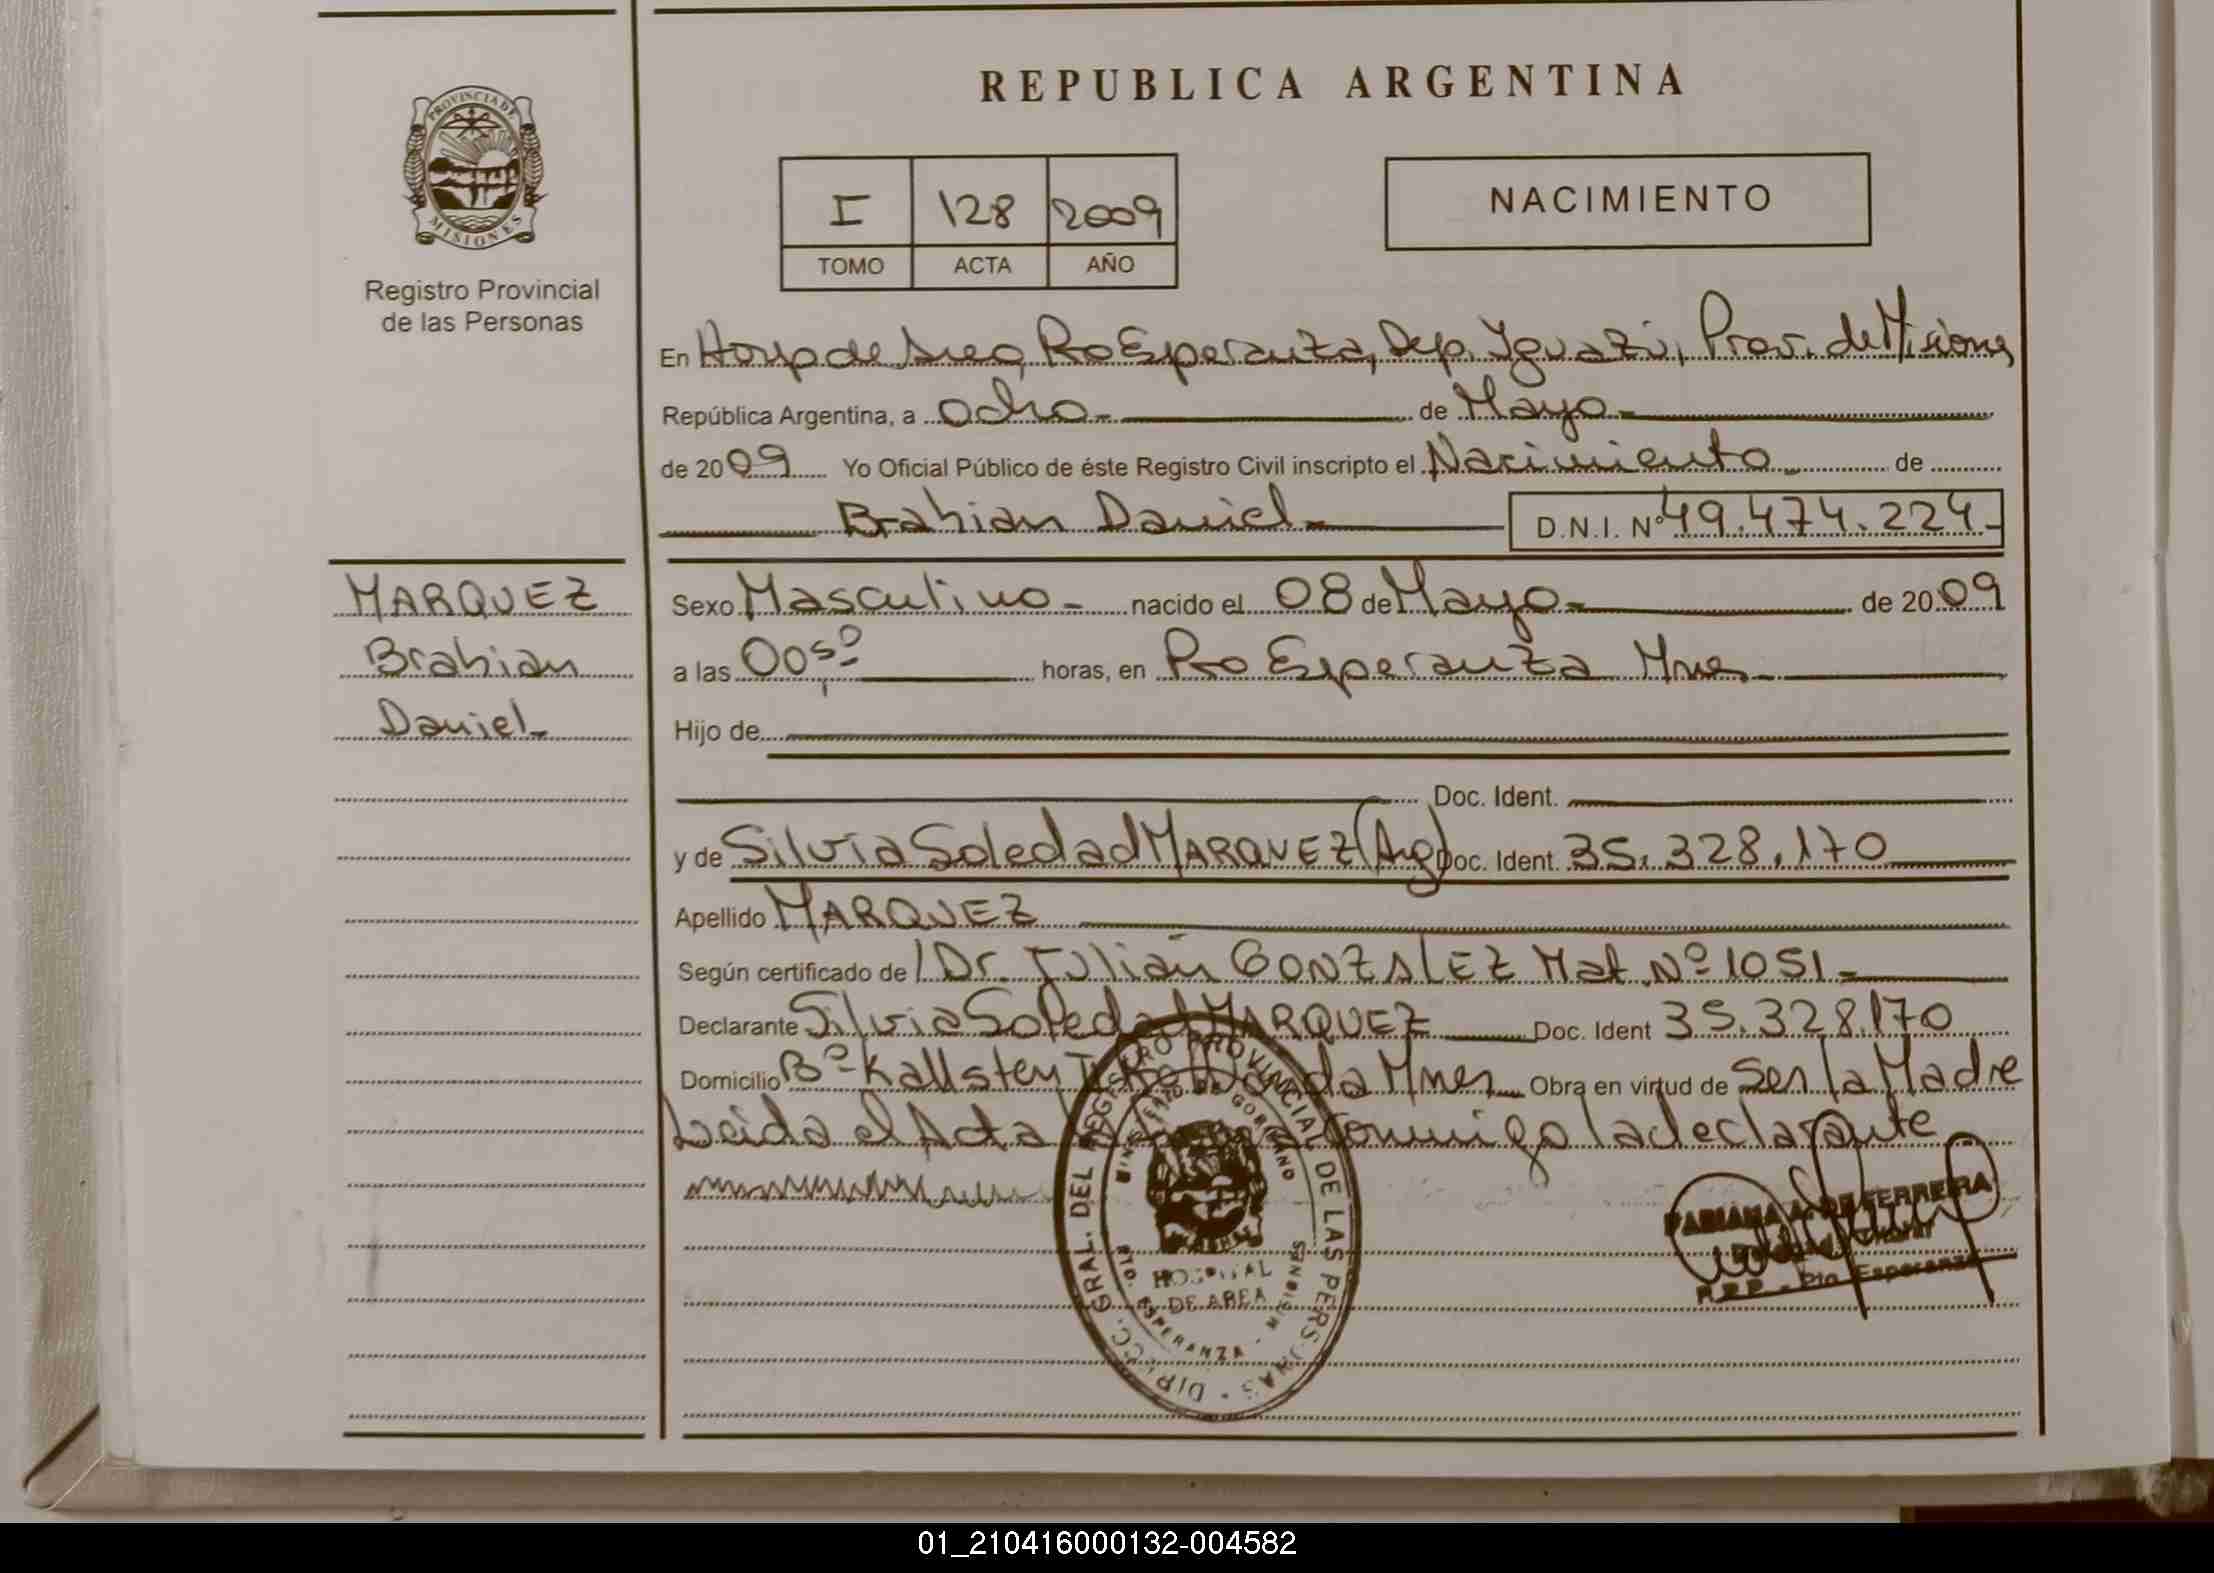 REPUBLICA ARGENTINA
PROVINCIA DE
MISIONES
Registro Provincial
de las Personas
I 128 2009
TOMO ACTA AÑO
NACIMIENTO
En Hosp de Area, Pto Esperanza, Dep. Iguazú, Prov. de Misiones,
República Argentina, a ocho de Mayo
de 2009 Yo Oficial Público de éste Registro Civil inscripto el Nacimiento de
Brahian Daniel D.N.I. Nº 49.474.224
MARQUEZ
Brahian
Daniel
Sexo Masculino nacido el 08 de Mayo de 2009
a las 00,50 horas, en Pto Esperanza Mnes
Hijo de
Doc. Ident.
y de Silvia Soledad MARQUEZ (Arg) Doc. Ident. 35.328.170
Apellido MARQUEZ
Según certificado de Dr. Julián GONZALEZ Mat. Nº 1051
Declarante Silvia Soledad MARQUEZ Doc. Ident 35.328.170
Domicilio Bº Kallsten Mnes Obra en virtud de Ser la Madre
Leida el Acta conmigo la declarante
DIRECC. GRAL. DEL REGISTRO PROVINCIAL DE LAS PERSONAS
MINISTERIO DE GOBIERNO
HOSPITAL
DE AREA
PTO. ESPERANZA - MISIONES
FABIANA A. DE FERREIRA
R.P.P. - Pto Esperanza
01_210416000132-004582